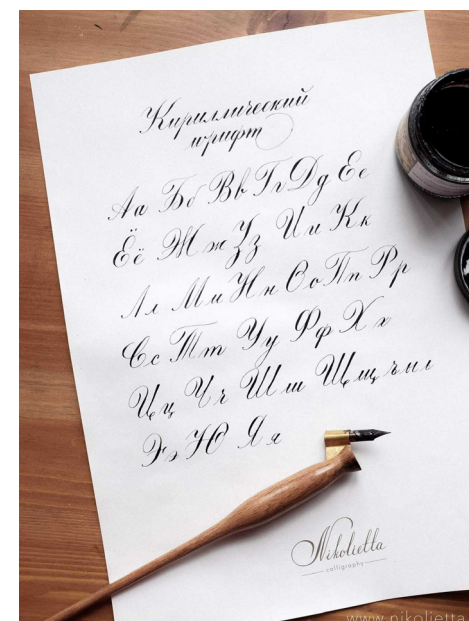 Кириллический
шрифт
Аа Бб Вв Гг Дд Ее
Ёё Жж Зз Ии Кк
Лл Мм Нн Оо Пп Рр
Сс Тт Уу Фф Хх
Цц Чч Шш Щщ ъ ы ь
Ээ Юю Яя
Nikolietta
calligraphy
www.nikolietta